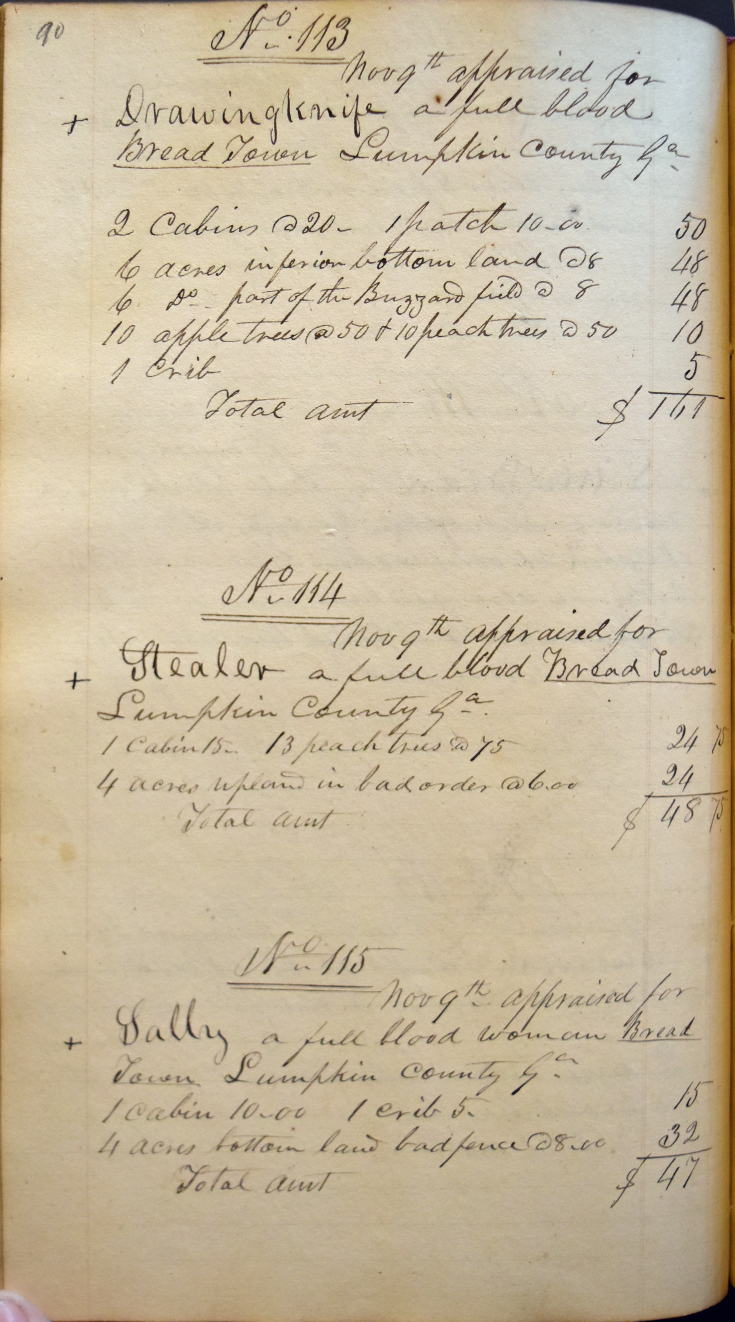 90
No. 113
Nov 9th appraised for
+ Drawingknife a full blood
Bread Town Lumpkin County Ga
2 Cabins @ 20- 1 patch 10-00 50
6 acres inferior bottom land @ 8 48
6 Do part of the Buzzard field @ 8 48
10 apple trees @ 50 & 10 peach trees @ 50 10
1 Crib 5
Total amt $ 161
No. 114
Nov 9th appraised for
+ Stealer a full blood Bread Town
Lumpkin County Ga
1 Cabin 15- 13 peach trees @ 75 24 75
4 acres upland in bad order @ 6.00 24
Total amt $ 48 75
No. 115
Nov 9th appraised for
+ Sally a full blood woman Bread
Town Lumpkin County Ga
1 Cabin 10-00 1 crib 5- 15
4 acres bottom land bad fence @ 8.00 32
Total amt $ 47